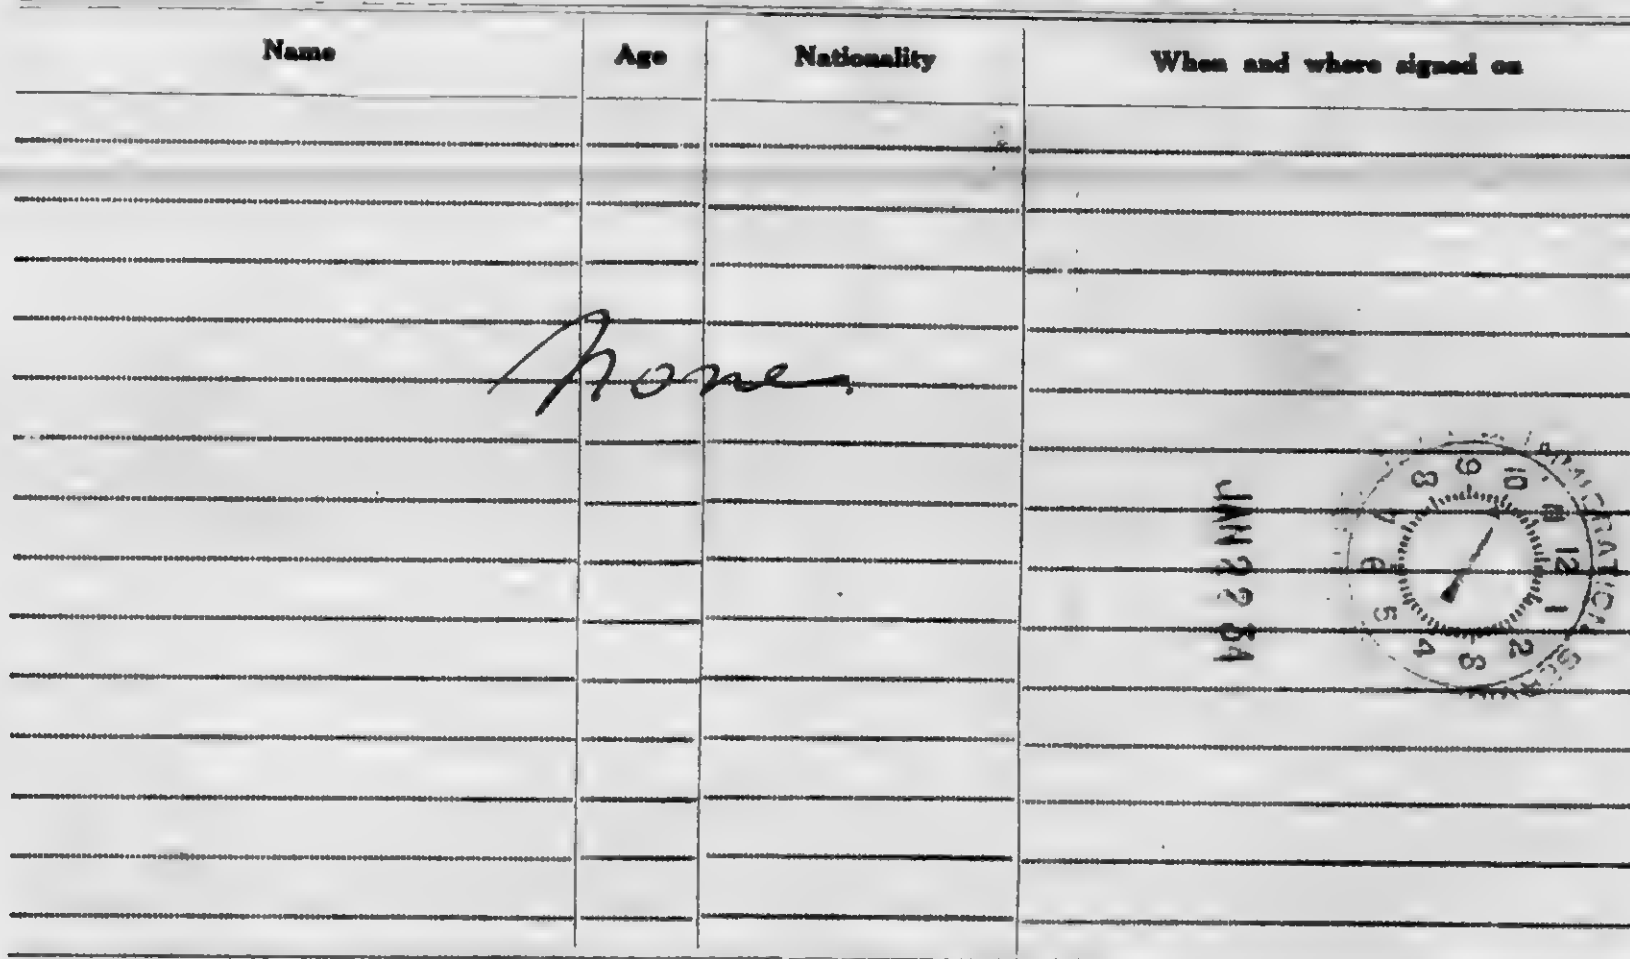 Name Age Nationality When and where signed on
None
JAN 22 51
9 10 11 12 1 2 3 4 5 6 7 8